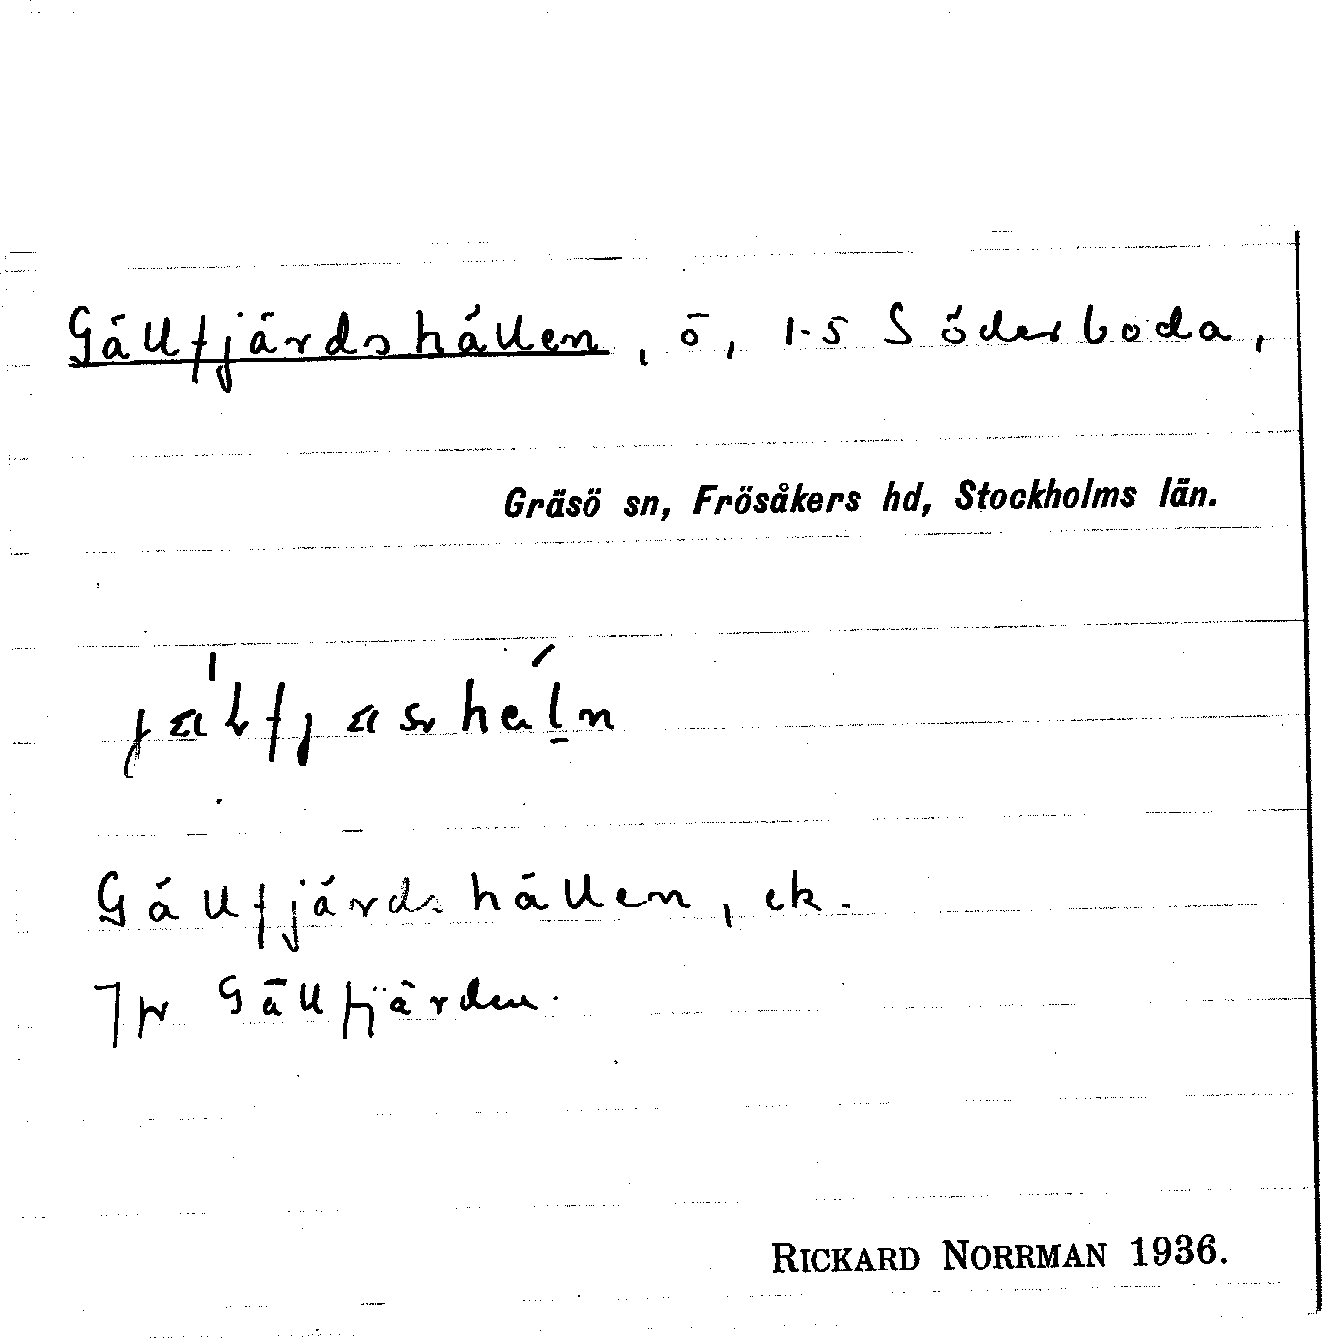 Gällfjärdshällen, ö, 1-5 Söderboda,
Gräsö sn, Frösåkers hd, Stockholms län.
Gällfjärdshällen, ek.
Jfr Gällfjärden.
RICKARD NORRMAN 1936.